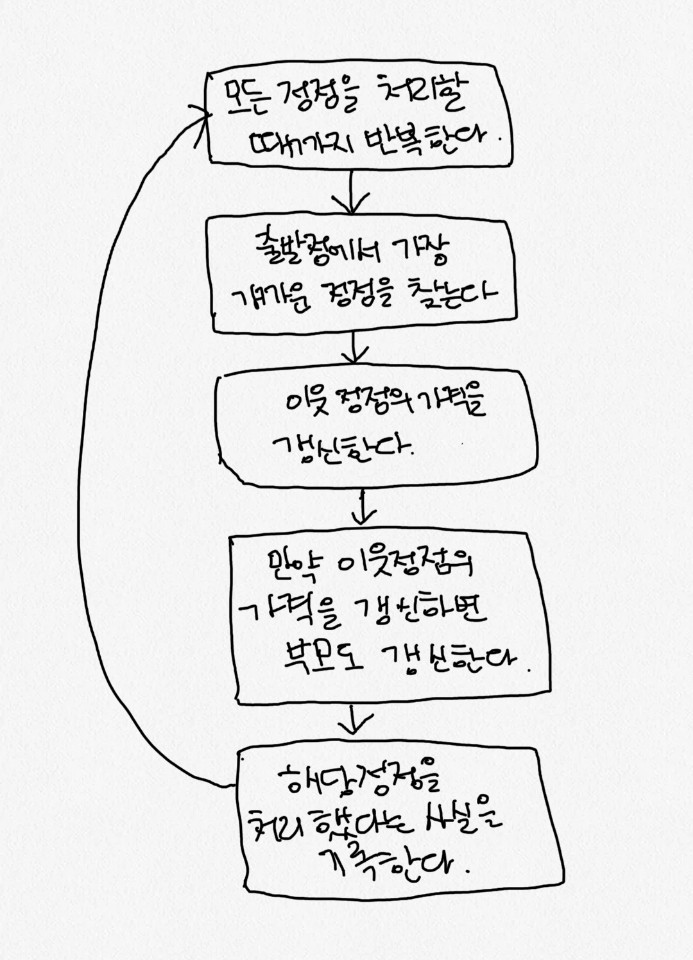 모든 정점을 처리할
때까지 반복한다.
출발점에서 가장
가까운 정점을 찾는다
이웃 정점의 가격을
갱신한다.
만약 이웃정점의
가격을 갱신하면
부모도 갱신한다.
해당정점을
처리했다는 사실을
기록한다.